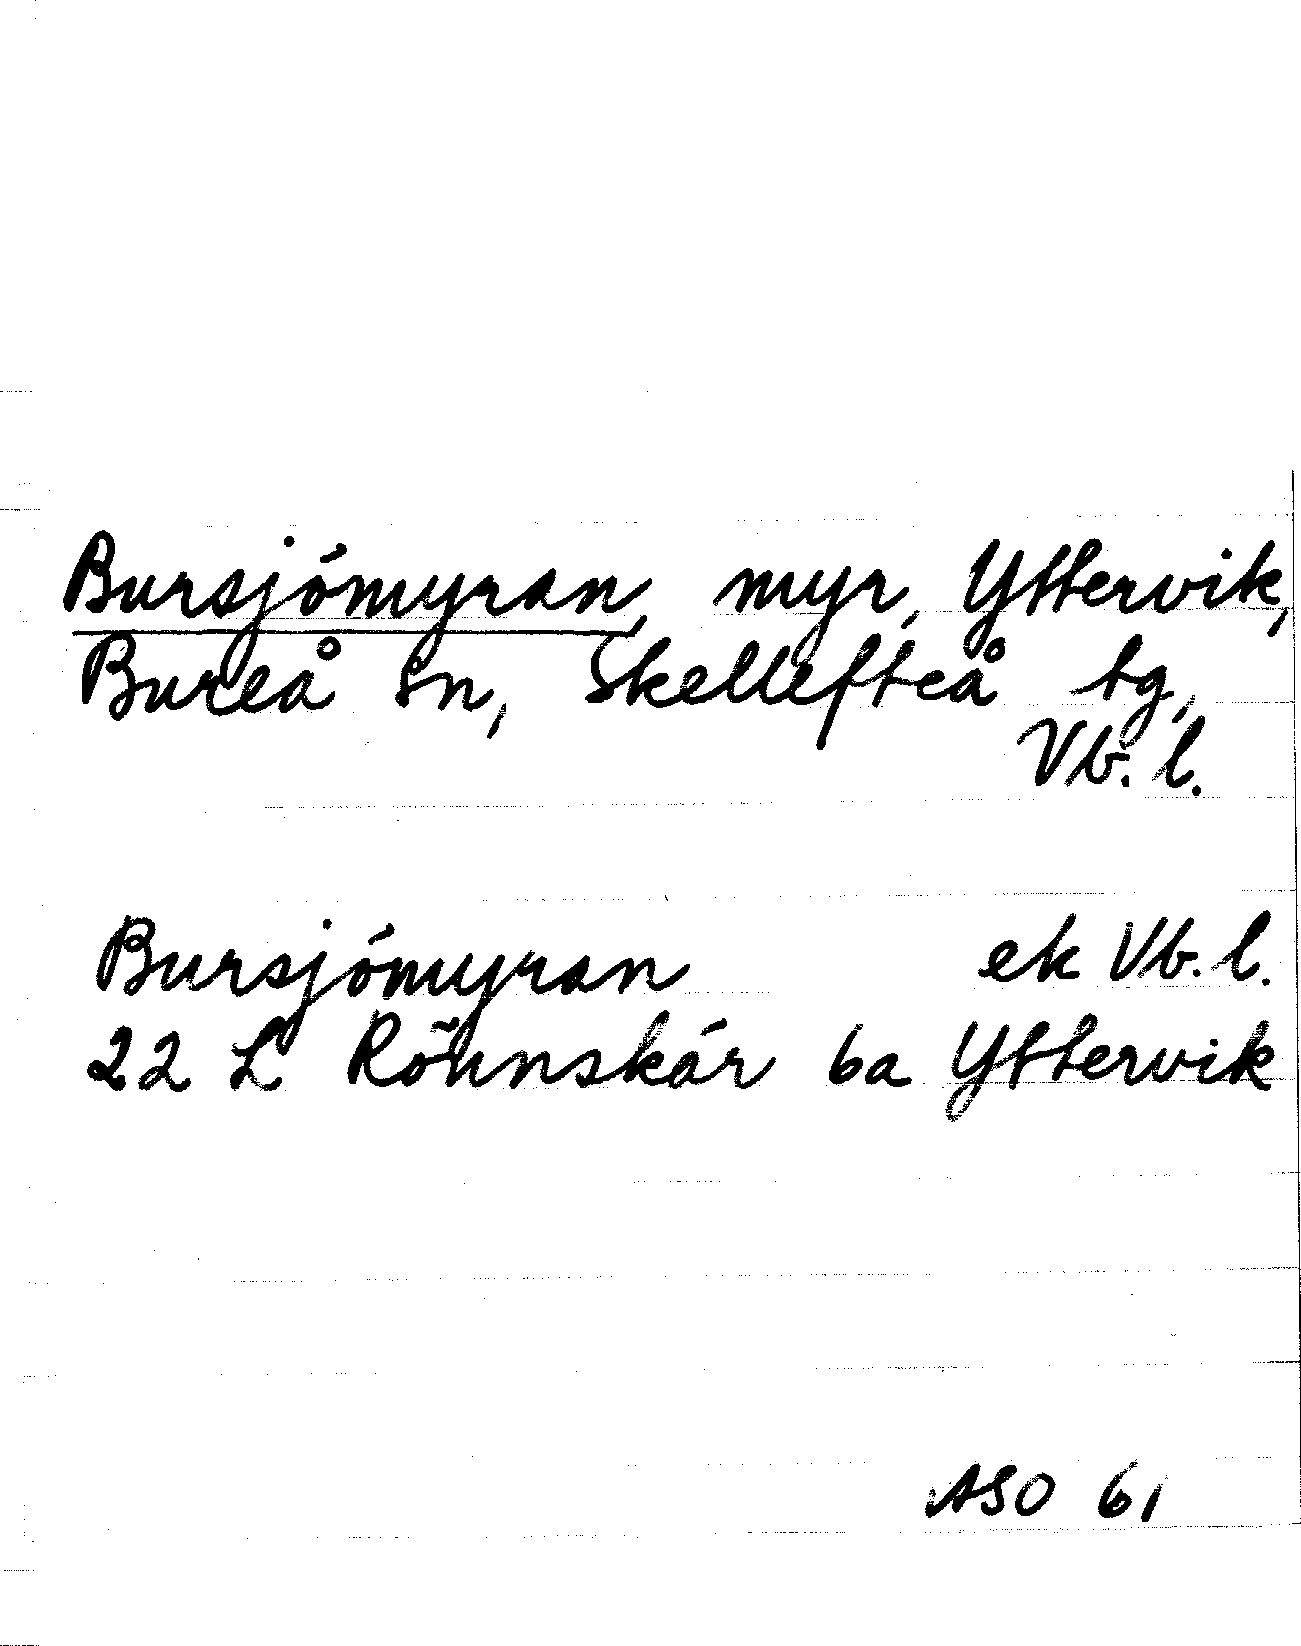 Bursjömyran, myr, Yttervik,
Bureå sn, Skellefteå tg,
Vb. l.
Bursjömyran ek Vb. l.
22 L Rönnskär 6a Yttervik
ASO 61